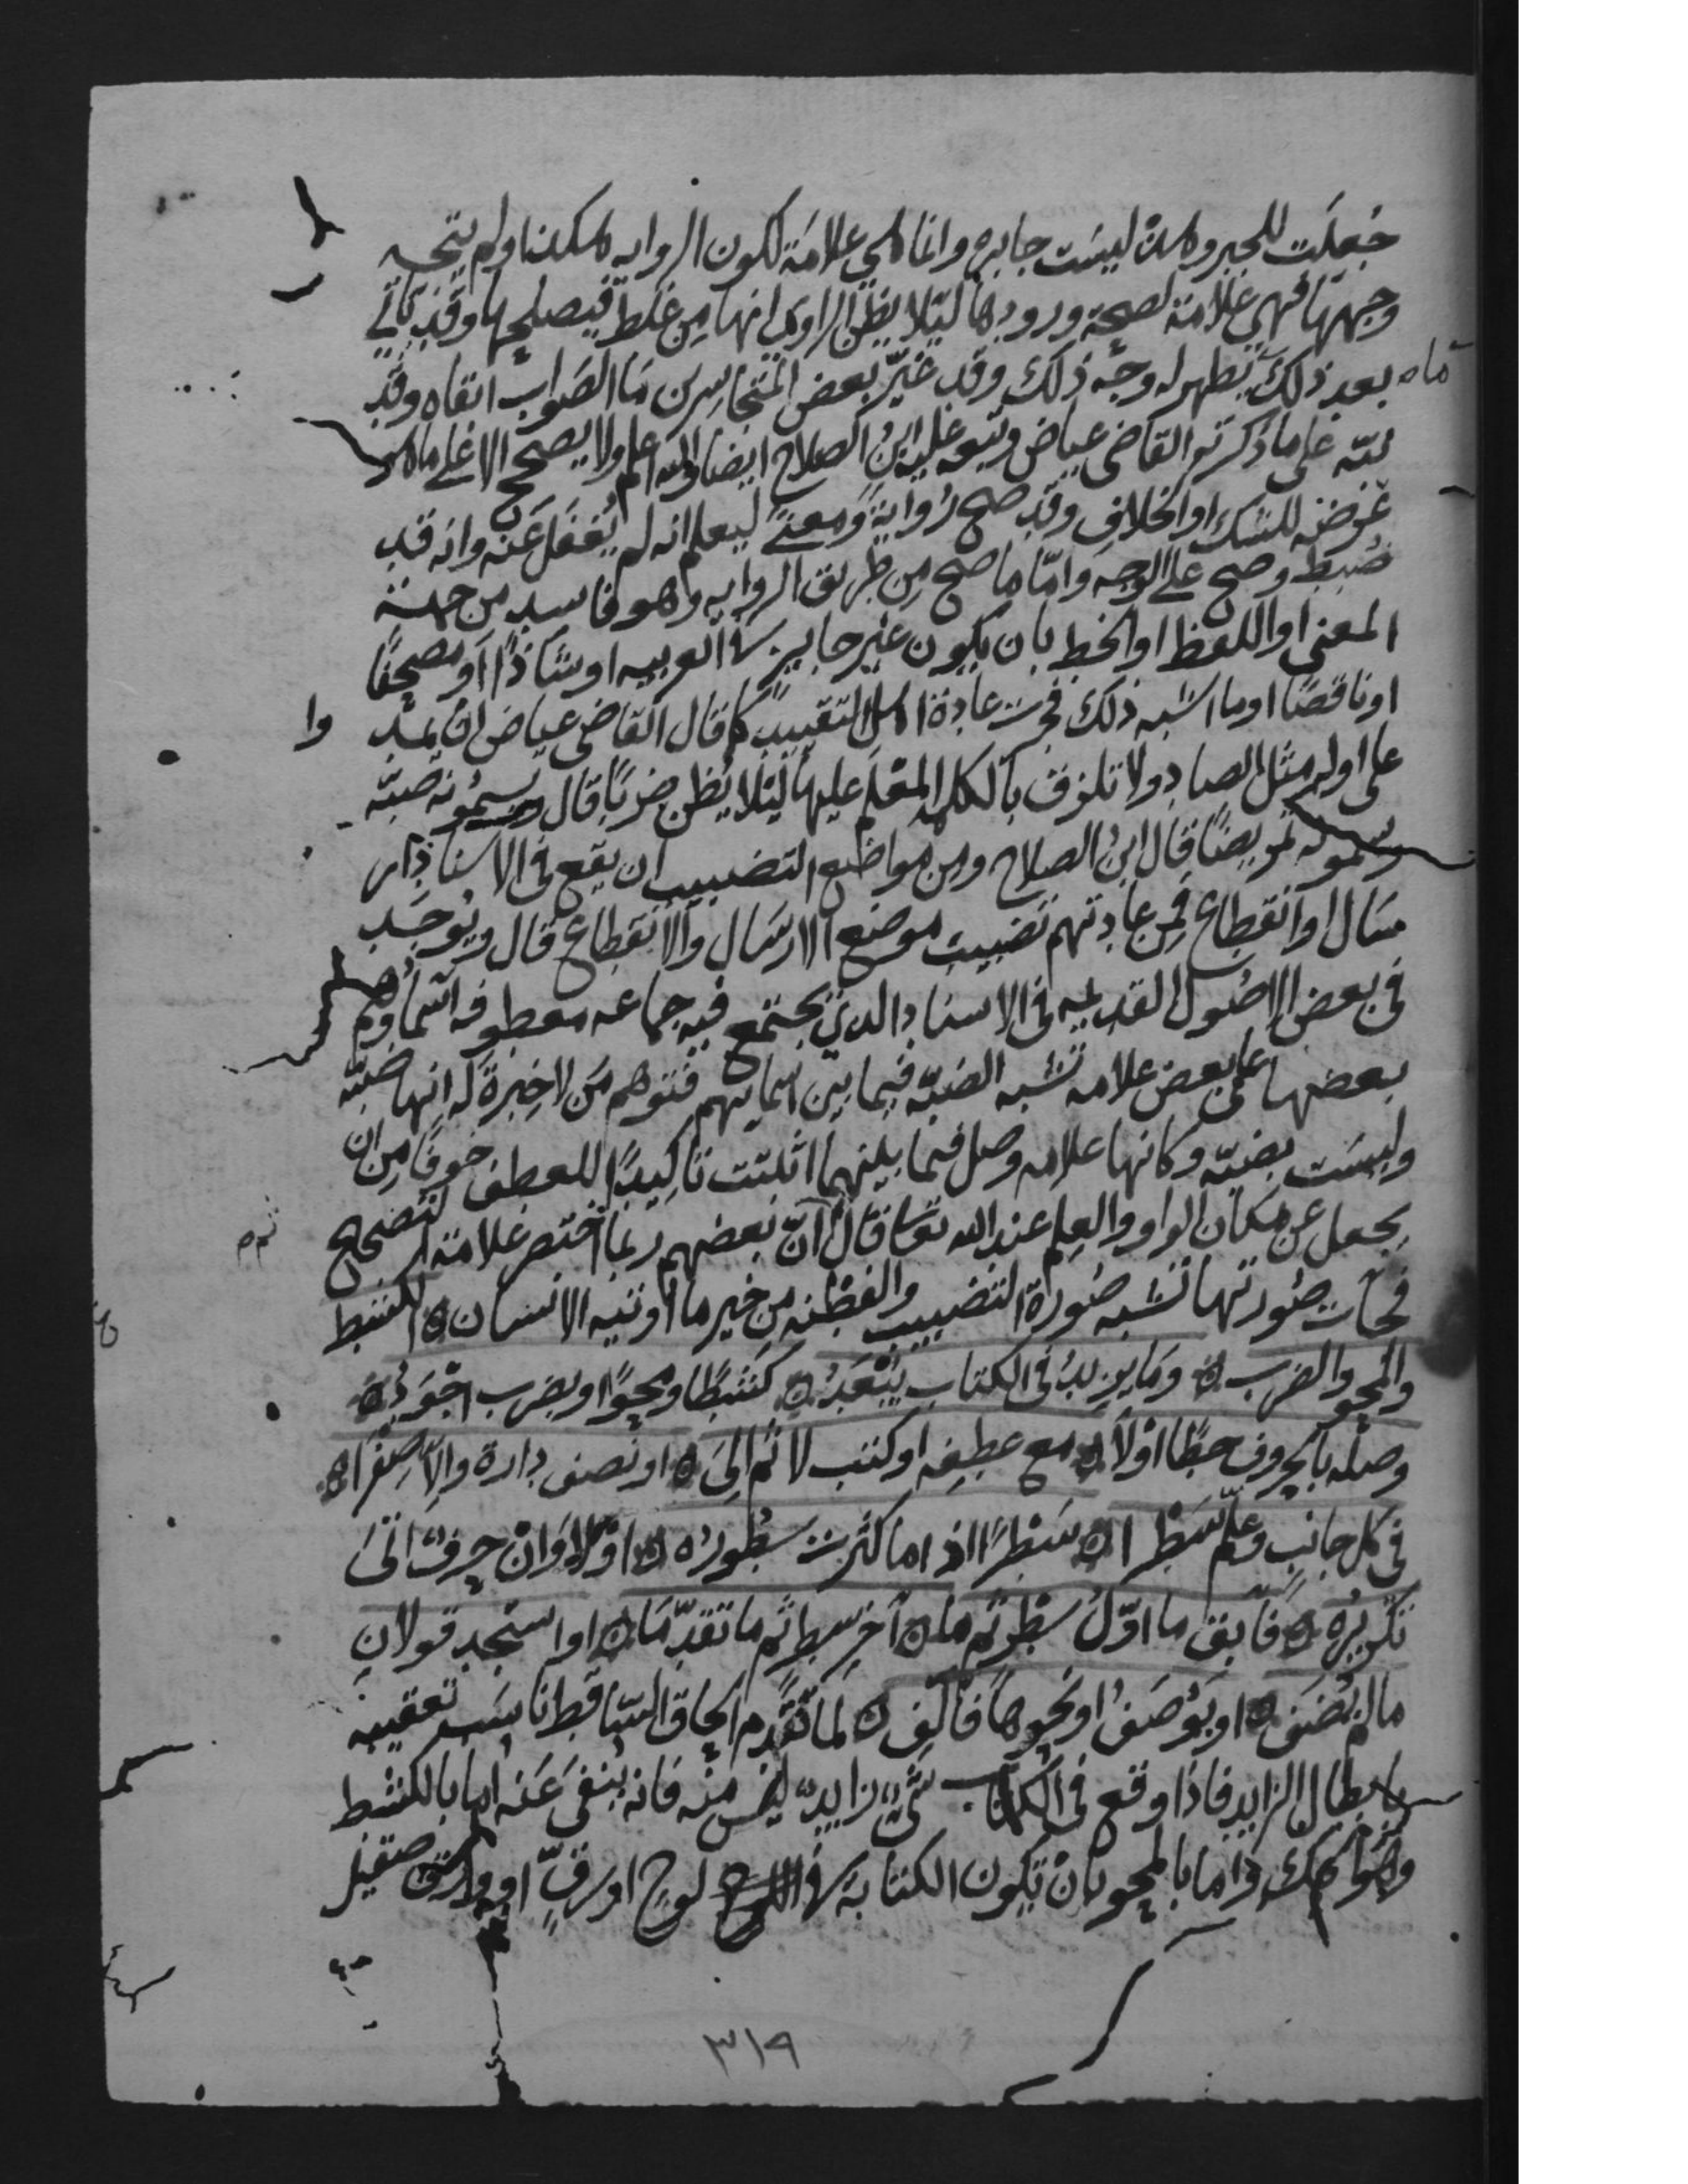 جُعلَت للجبر وهذه ليسَت جابره وانما هي علامَة لكون الروايه هكذا ولم يتجه
وجهها فهي علامَة لصحة ورودها ليَلا يظن الراوي انها مِن غلط فيصلحها وقد ياتي
بعد ذلك تظهر له وجْه ذلك وقد غيّر بعض المتجاسرين مَا الصَواب ابقاه وقد
نبّه على ما ذكرته القاضى عياض وتبعه عليه ابنُ الصلاح ايضا والله اعلم ولا يصحح الا على ما هو
عُرضه للشك او الخلاف وقد صح رُوايةً وَمعنًى ليعلم انه لم يُغفَل عَنه وانه قد
ضُبط وصح على الوجه وامّا ما صح مِن طريق الروايه وهو فاسد من جهة
المعنى او اللفظ او الخط بان يكون غير جايز فى العربيه او شاذًا او مصحفًا
او ناقصًا او ما اشبه ذلك فجرت عادة اهل التقييد كما قال القاضى عياض ان يمد
على اوله مثل الصاد ولا تلزق بالكلمة المعْلم عليها ليَلا يُظن ضربًا قال ويسمُونه ضبّه
ويسمونه تمريضًا قال ابنُ الصلاح ومِن مواضع التضبيب ان يقع فى الاسناد ار
سَال او انقطاع فمن عادتهم تضبيب موضع الارسَال والانقطاع قال ويُوجَد
فى بعض الاصُول القديمه فى الاسناد الذي يجتمع فيه جماعه معطوفه اسماوهم
بعضها على بعض علامه تشبه الضبّه فيما بين اسمايهم فتوهم مَن لا خِبرة لَه انها ضبّه
وليسَت بضبّه وكانها علامه وصل فيما بينهما اثبتت تاكيدًا للعطف خوفًا من ان
يجعل عن مكان الواو والعلم عند الله تعا قال ان بعضهم ربما اختصر علامة التصحيح
فجات صُورتها تشبه صُورة التضبيب والفِطْنه من خير ما اوتيه الانسان ه الكشط
والمحو والضرب ه ومَا يزيدُ فى الكتاب يُبْعَدُ ه كشْطًا ومحوًا او بضرب اجْوَدُ ه
وصلْه بالحروف خطًا اوْلًا ه مع عطفِه او كتب لا ثم الِى ه او نصف دارة والا صِفْرا ه
فى كل جانب وعلّم سَطْرا ه سَطْرًا اذا ما كثرت سُطورُه ه اوْلا وَانْ حرفٌ اتَى
تكريرُه ه فابْق ما اوّلُ سطْر ثم ما ه آخر سطر ثم ما تقدّمَا ه او استجد قولانِ
ما لم يُضَف ه او يُوصَفُ او نحوُهَا فالِف ه لما تقدّم الحاق السّاقط ناسَب تعقيبَه
بابطال الزايد فاذا وقع فى الكتاب شيٌ زايدٌ ليس منْه فانه يُنفَى عَنه اما بالكشط
وهُوَ الحك واما بالمحو بانْ تكون الكتابة فى لوح او رقٍّ او ورق صقيل
ماه
وا
ثم م
٣١٩